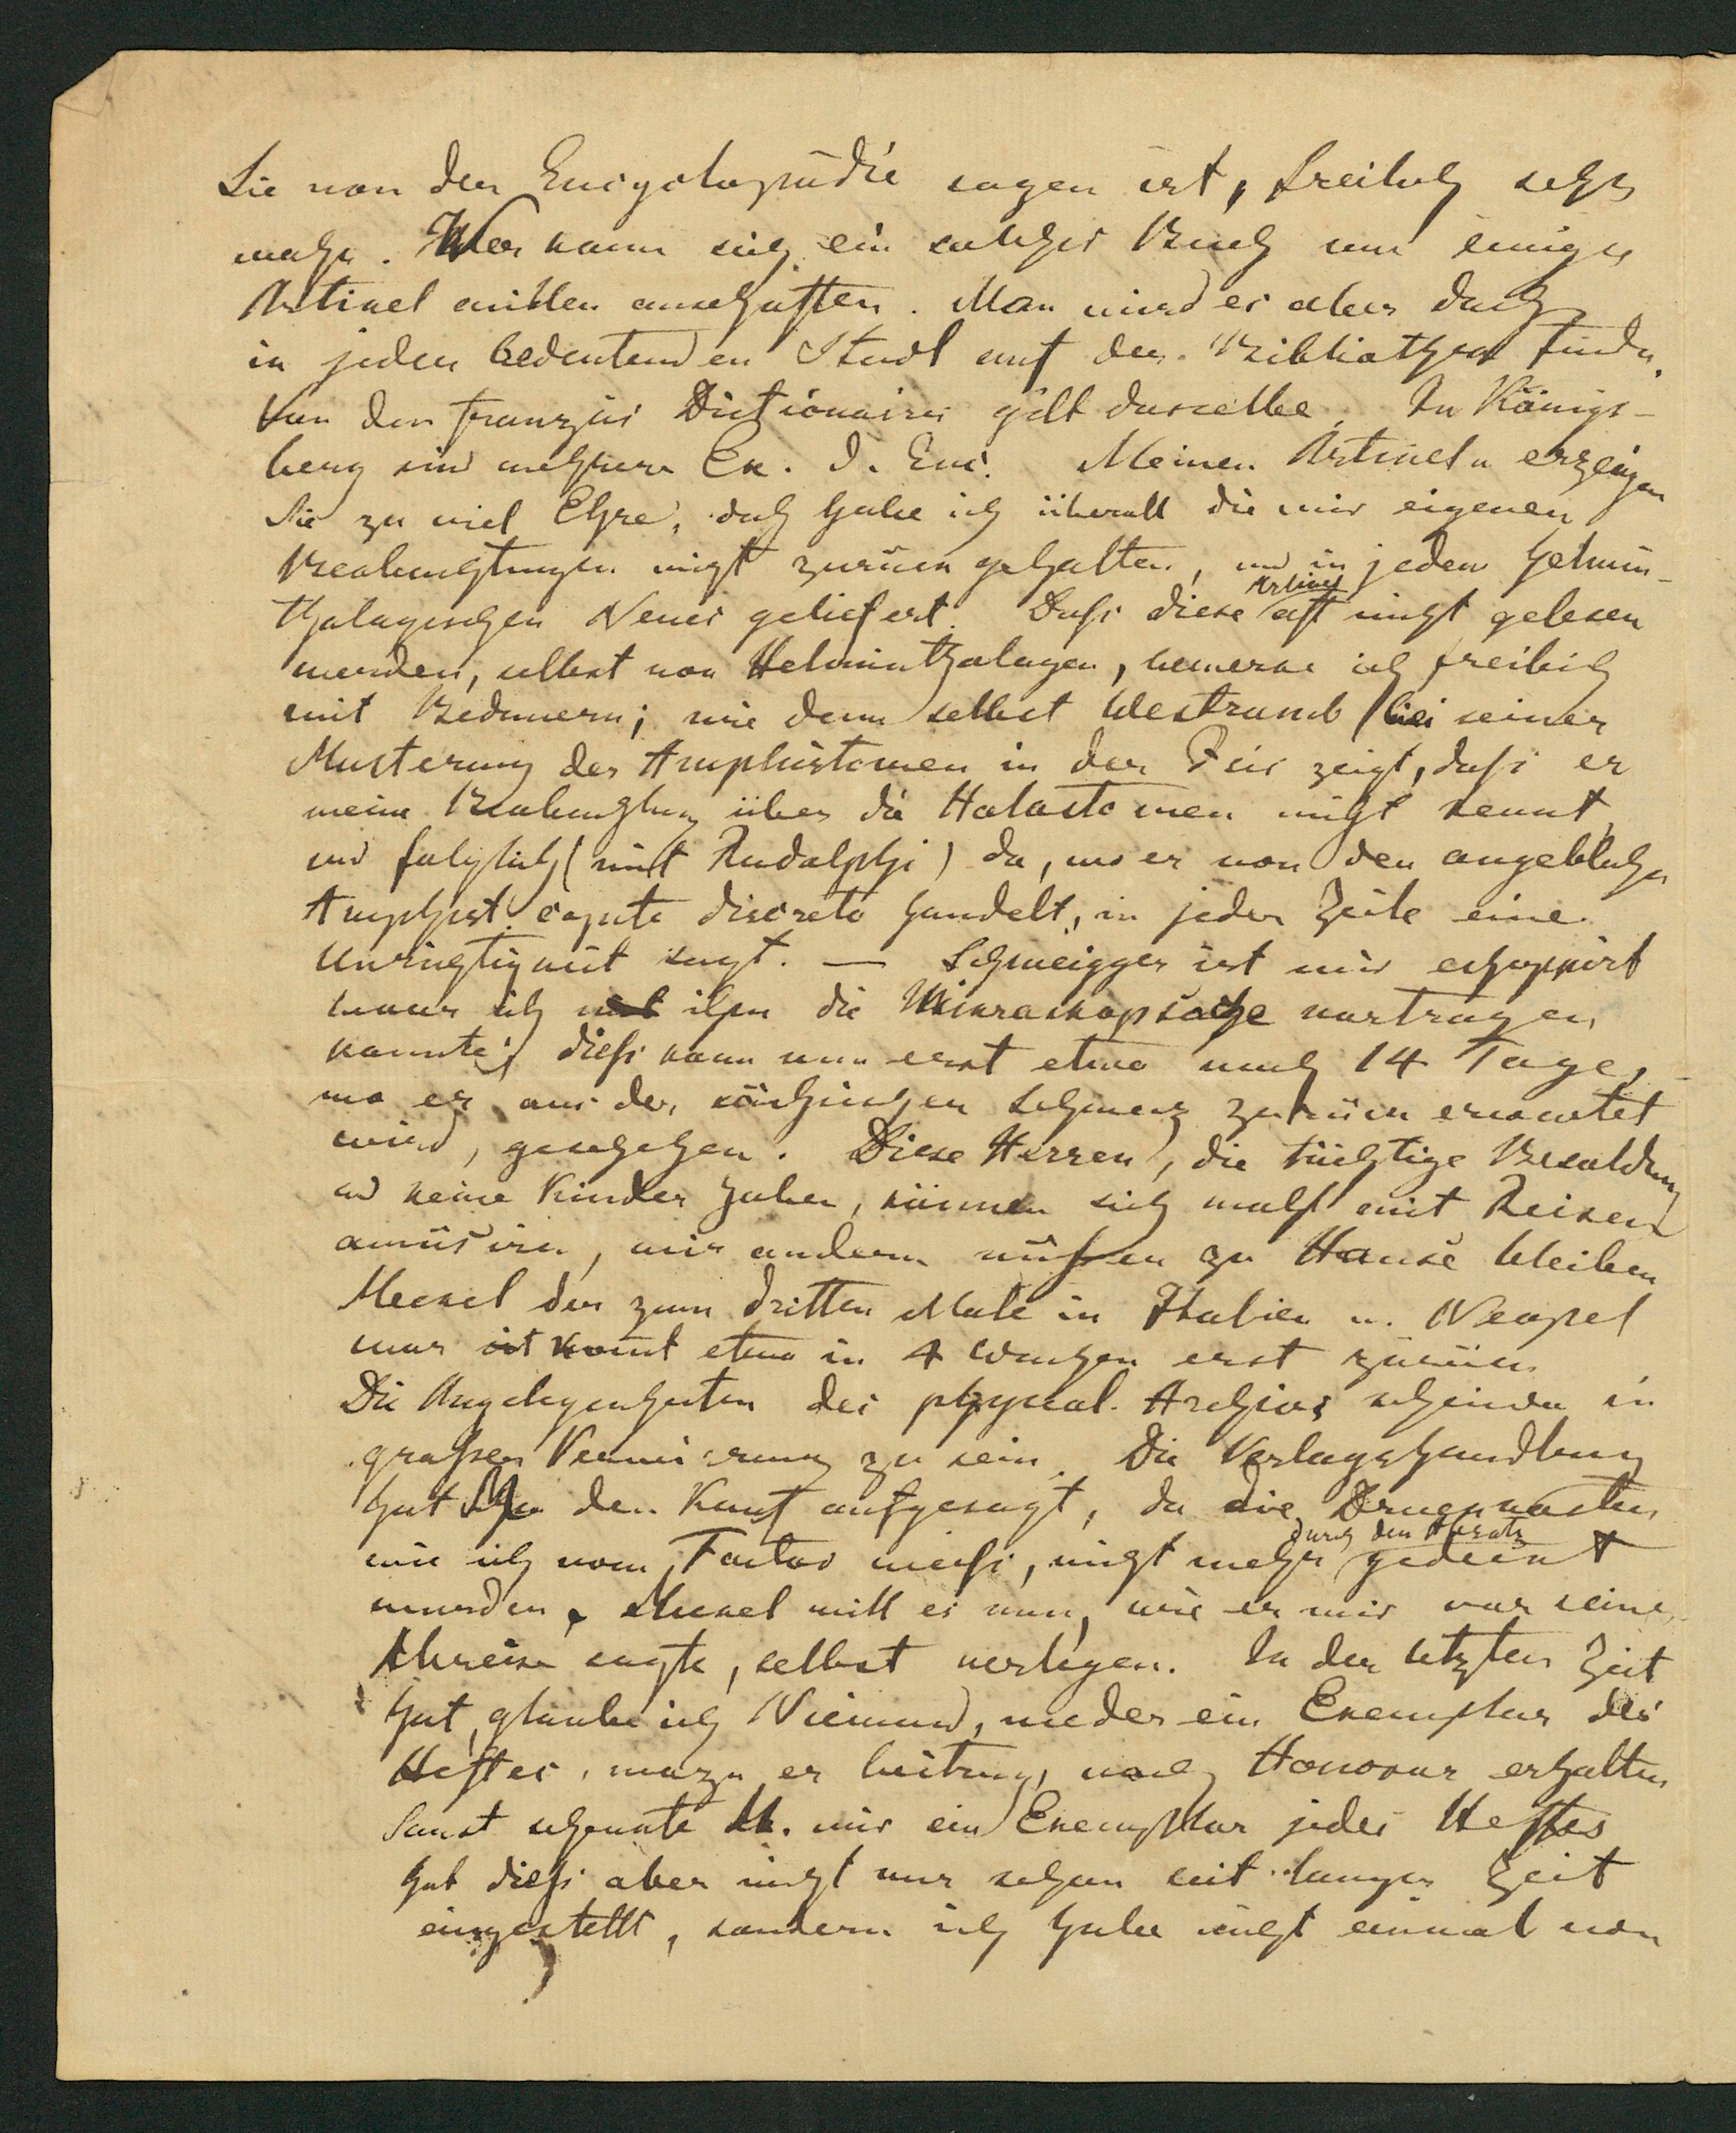 Sie von der Encyclopädie sagen ist, freilich sehr
wahr. Wer kann sich ein solches Buch um einiger
Artikel willen anschaffen. Man wird es aber doch
in jeder bedeutenden Stadt auf der Bibliothek finden.
Von den französ Dictionaires gilt dasselbe. In Königs-
berg sind mehrere Ex. d. Enc. Meinen Artikeln erzeigen
Sie zu viel Ehre, doch habe ich überall die mir eigenen
Beobachtungen nicht zurück gehalten, und in jedem helmin-
thologischen Neues geliefert. Daß diese Artikel oft nicht gelesen
werden, selbst von Helminthologen, bemerke ich freilich
mit Bedauern; wie denn selbst Westrumb bei seiner
Musterung der Amphistomen in der Isis zeigt, daß er
meine Beobachtung über die Holostomen nicht kennt,
und folglich (mit Rudolphi) da, wo er von den angeblichen
Amphist. capite discreto handelt, in jeder Zeile eine
Unrichtigkeit sagt. — Schweigger ist mir echappirt
bevor ich ihm die Mikroskopsache vortragen
konnte; dieß kann nun erst etwa nach 14 Tage,
wo er aus der sächsischen Schweiz zurück erwartet
wird, geschehen. Diese Herren, die tüchtige Besoldung
und keine Kinder haben, können sich wohl mit Reisen
amüsiren, wir andern müßen zu Hause bleiben
Meckel der zum dritten Male in Italien u. Neapel
war ist kommt etwa in 4 Wochen erst zurück
Die Angelegenheiten des physiol. Archivs scheinen in
großer Verwirrung zu sein. Die Verlagshandlung
hat ihm den Kauf aufgesagt, da die Druckkosten
wie ich vom Factor weiß, nicht mehr durch den Absatz gedeckt
wurden, Meckel will es nun, wie er mir vor seiner
Abreise sagte, selbst verlegen. In der letzten Zeit
hat, glaube ich Niemand, weder ein Exemplar des
Heftes, wozu er beitrug, noch Honorar erhalten
Sonst schenkte M. mir ein Exemplar jedes Heftes
hat dieß aber nicht nur schon seit langer Zeit
eingestellt, sondern ich habe nicht einmal von